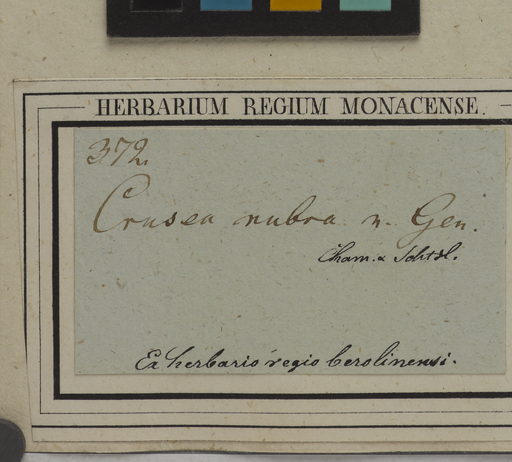 HERBARIUM REGIUM MONACENSE.
372.
Crusea rubra n. Gen.
Cham. & Schtdl.
Ex herbario regio berolinensi.